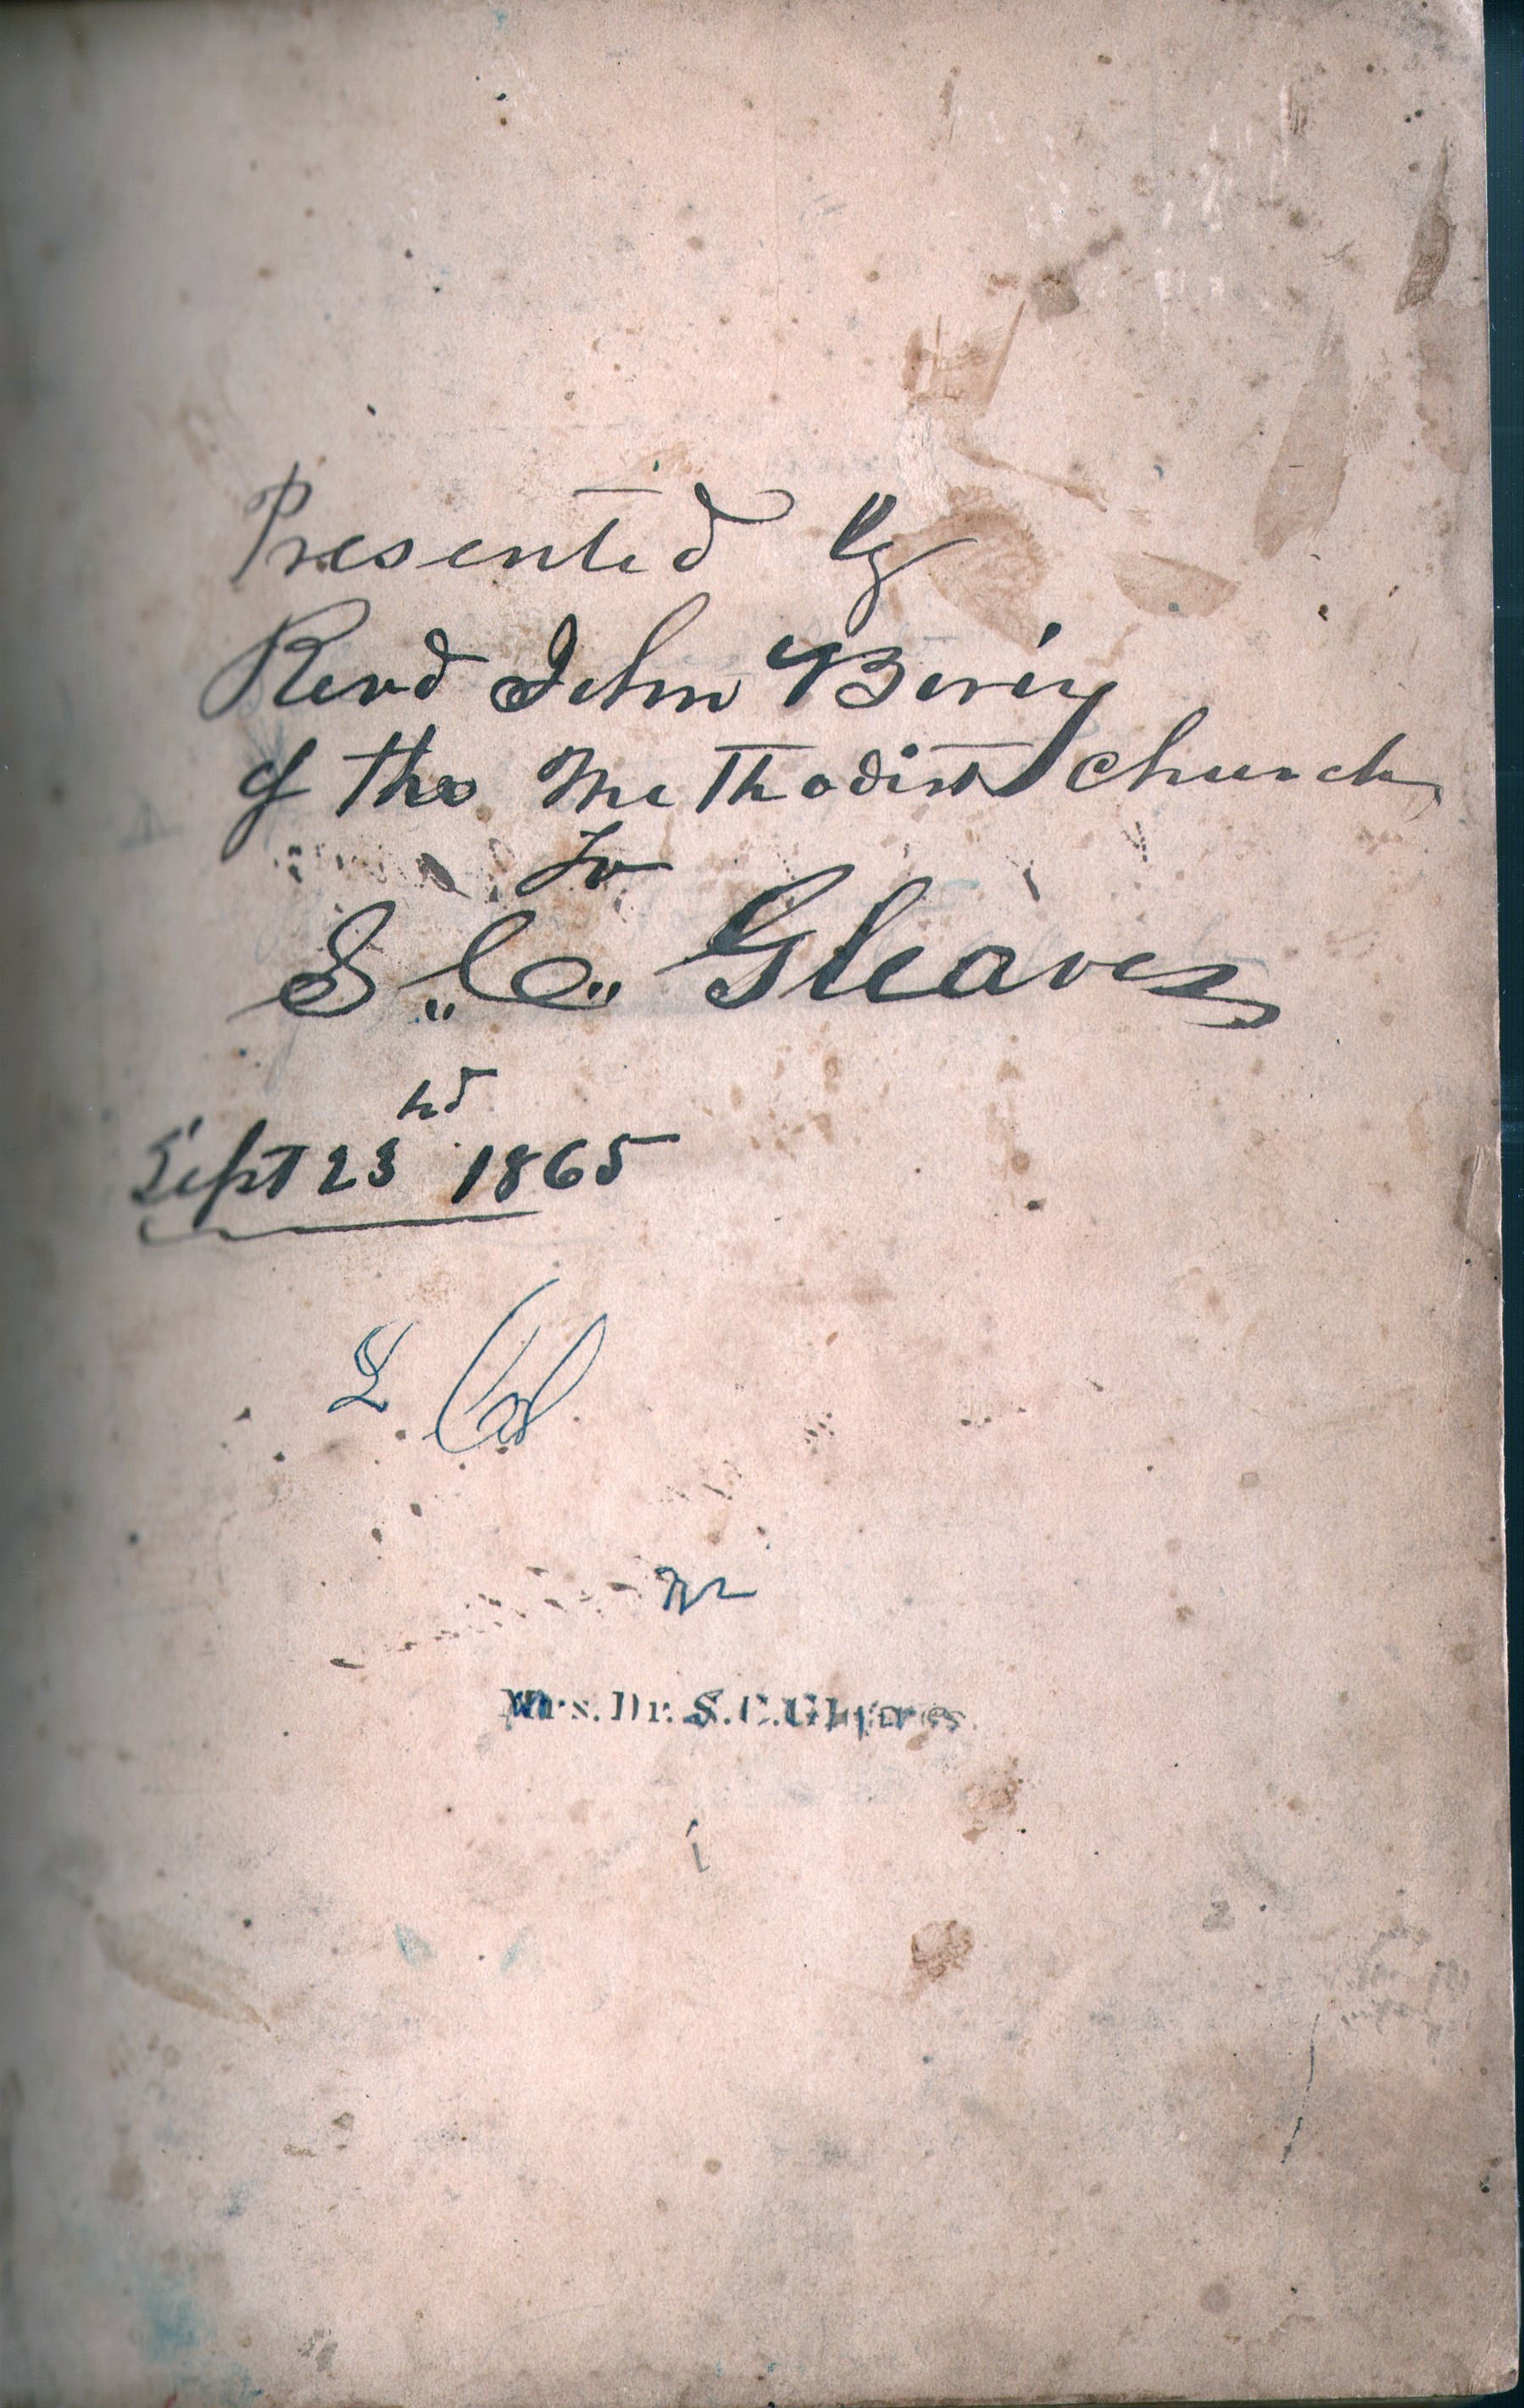 Presented by
Revd John Boring
of the Methodist Church
to
S. C. Gleaves
Sept 23rd 1865
Mrs. Dr. S. C. Gleaves.